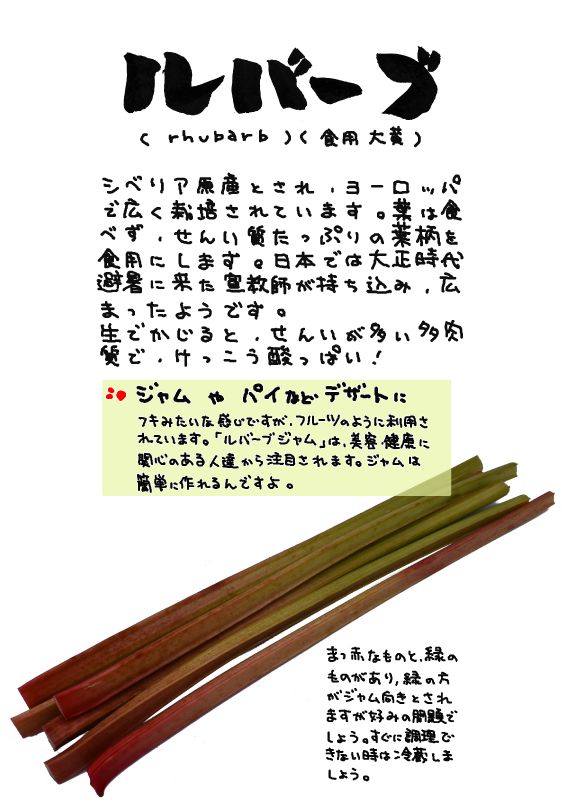 ルバーブ
( rhubarb )( 食用 大黄 )
シベリア原産とされ、ヨーロッパ
で広く栽培されています。葉は食
べず、せんい質たっぷりの葉柄を
食用にします。日本では大正時代
避暑に来た宣教師が持ち込み、広
まったようです。
生でかじると、せんいが多い多肉
質で、けっこう酸っぱい!
ジャム や パイなど デザートに
フキみたいな感じですが、フルーツのように利用さ
れています。「ルバーブジャム」は、美容・健康に
関心のある人達から注目されます。ジャムは
簡単に作れるんですよ。
まっ赤なものと、緑の
ものがあり、緑の方
がジャム向きとされ
ますが好みの問題で
しょう。すぐに調理で
きない時は冷蔵しま
しょう。